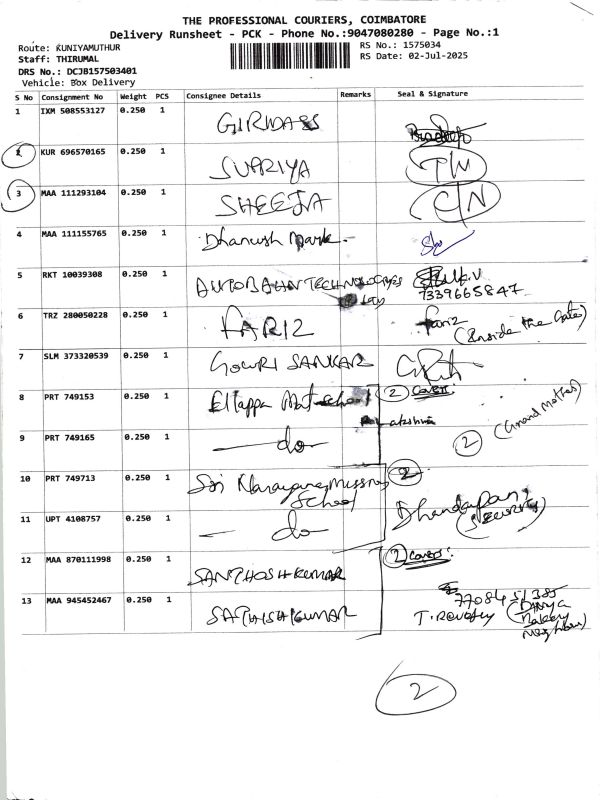 THE PROFESSIONAL COURIERS, COIMBATORE
Delivery Runsheet - PCK - Phone No.:9047080280 - Page No.:1
Route: KUNIYAMUTHUR
RS No.: 1575034
Staff: THIRUMAL
RS Date: 02-Jul-2025
DRS No.: DCJB157503401
Vehicle: Box Delivery
S No Consignment No Weight PCS Consignee Details Remarks Seal & Signature
1 IXM 508553127 0.250 1 GURUDASS
2 KUR 696570165 0.250 1 SUPRIYA
3 MAA 111293104 0.250 1 SHEEJA
4 MAA 111155765 0.250 1 Dhanush
5 RKT 10039308 0.250 1 AUTOBAHN TECHNOLOGIES
7339665847
6 TRZ 280050228 0.250 1 FARIZ Fariz (Inside the Gate)
7 SLM 373320539 0.250 1 GOWRI SANKAR
8 PRT 749153 0.250 1 Ellappa Mat school (2) Covers:
9 PRT 749165 0.250 1 —do— (2) (Anand Mother)
10 PRT 749713 0.250 1 Sri Narayana School (2)
11 UPT 4108757 0.250 1 —do— Dhandapani (Security)
12 MAA 870111998 0.250 1 SANTHOSH KUMAR (2) Covers:
13 MAA 945452467 0.250 1 SATHISH KUMAR T. Revathy
(2)